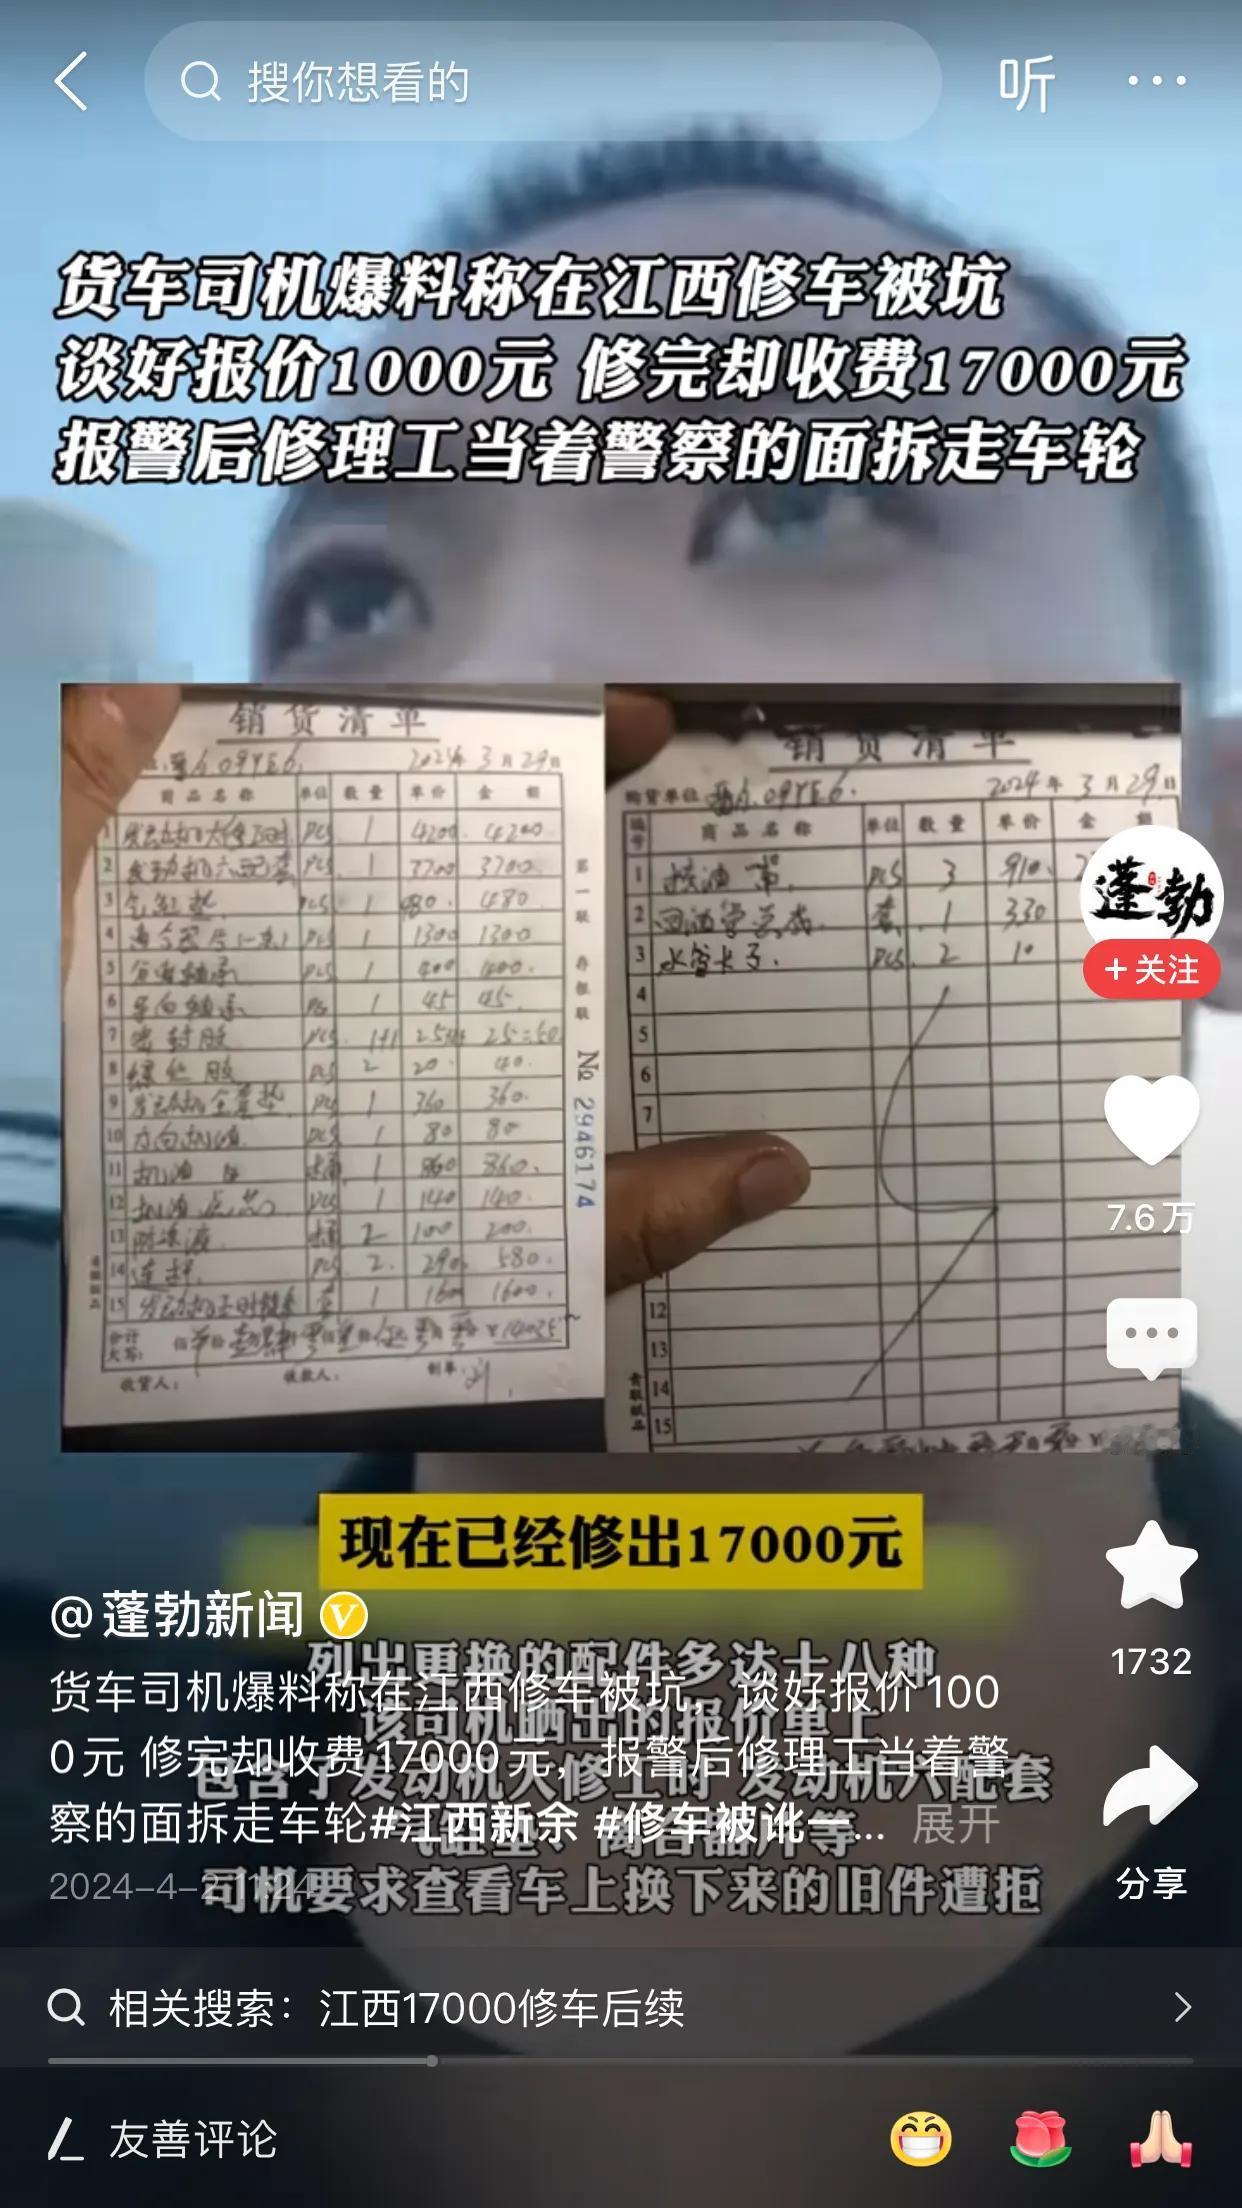 搜你想看的
听
货车司机爆料称在江西修车被坑
谈好报价1000元 修完却收费17000元
报警后修理工当着警察的面拆走车轮
销货清单
2024年3月29日
商品名称 单位 数量 单价 金额
1 发动机大修工时 PCS 1 4200. 4200
2 发动机六配套 PCS 1 3700 3700.
3 气缸垫 PCS 1 480. 480.
4 离合器片(一套) PCS 1 1300 1300
5 分离轴承 PCS 1 400 400.
6 导向轴承 PCS 1 45 45.
7 密封胶 PCS 1+1 25=50
8 PCS 2 20. 40.
9 发动机全套垫 PCS 1 360 360.
10 方向机油 PCS 1 80 80
11 机油 桶 1 860 860.
12 机油滤芯 PCS 1 140 140.
13 防冻液 桶 2 100 200.
14 连杆. PCS 2. 290. 580.
15 1 1600 1600.
合计大写： ¥14035
收货人： 收款人： 制单：
第一联 存根联
№ 2946174
销货清单
购货单位 2024年3月29日
编号 商品名称 单位 数量 单价 金
1 PCS 3 910.
2 回油管总成. 套. 1 330
3 水管卡子. PCS. 2 10
4
5
6
7
12
13
14
15
蓬勃
+关注
7.6万
现在已经修出17000元
@蓬勃新闻
列出更换的配件多达十八种
货车司机爆料称在江西修车被坑，谈好报价100
该司机晒出的报价单上
0元 修完却收费17000元，报警后修理工当着警
包含了发动机大修工时 发动机六配套
察的面拆走车轮#江西新余 #修车被讹一... 展开
气缸垫、离合器片等
2024-4-2 11:24
司机要求查看车上换下来的旧件遭拒
1732
分享
相关搜索：江西17000修车后续
友善评论